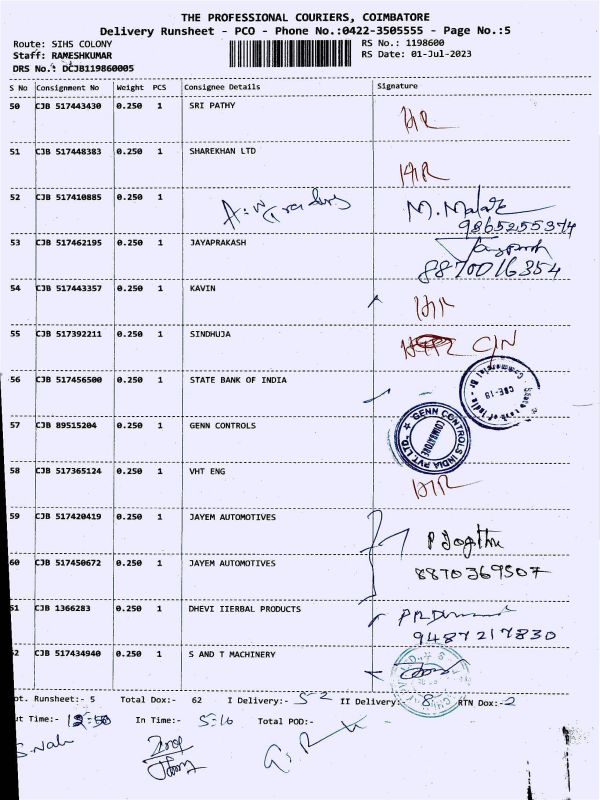 THE PROFESSIONAL COURIERS, COIMBATORE
Delivery Runsheet - PCO - Phone No.:0422-3505555 - Page No.:5
Route: SIHS COLONY RS No.: 1198600
Staff: RAMESHKUMAR RS Date: 01-Jul-2023
DRS No.: DCJB119860005
S No Consignment No Weight PCS Consignee Details Signature
50 CJB 517443430 0.250 1 SRI PATHY HR
51 CJB 517448383 0.250 1 SHAREKHAN LTD HR
52 CJB 517410885 0.250 1 Traders M. Malar
9865255374
53 CJB 517462195 0.250 1 JAYAPRAKASH
8870016354
54 CJB 517443357 0.250 1 KAVIN HR
55 CJB 517392211 0.250 1 SINDHUJA C/N
56 CJB 517456500 0.250 1 STATE BANK OF INDIA
State Bank of India Commercial Br CBE-18
57 CJB 89515204 0.250 1 GENN CONTROLS GENN CONTROLS INDIA PVT LTD COIMBATORE
58 CJB 517365124 0.250 1 VHT ENG HR
59 CJB 517420419 0.250 1 JAYEM AUTOMOTIVES P
60 CJB 517450672 0.250 1 JAYEM AUTOMOTIVES 8870369507
61 CJB 1366283 0.250 1 DHEVI IIERBAL PRODUCTS
9487217830
52 CJB 517434940 0.250 1 S AND T MACHINERY
ot. Runsheet:- 5 Total Dox:- 62 I Delivery:- 52 II Delivery:- 8 RTN Dox:-2
ut Time:- 12:50 In Time:- 5:10 Total POD:-